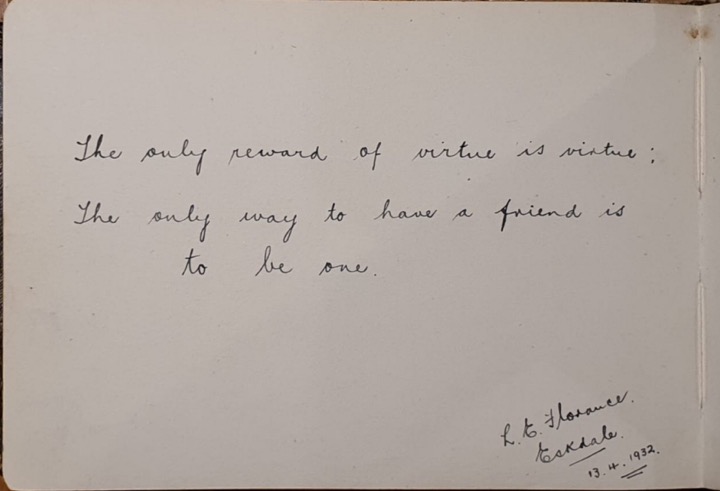 The only reward of virtue is virtue;
The only way to have a friend is
to be one.
L. E. Florance.
Eskdale.
13.4.1932.